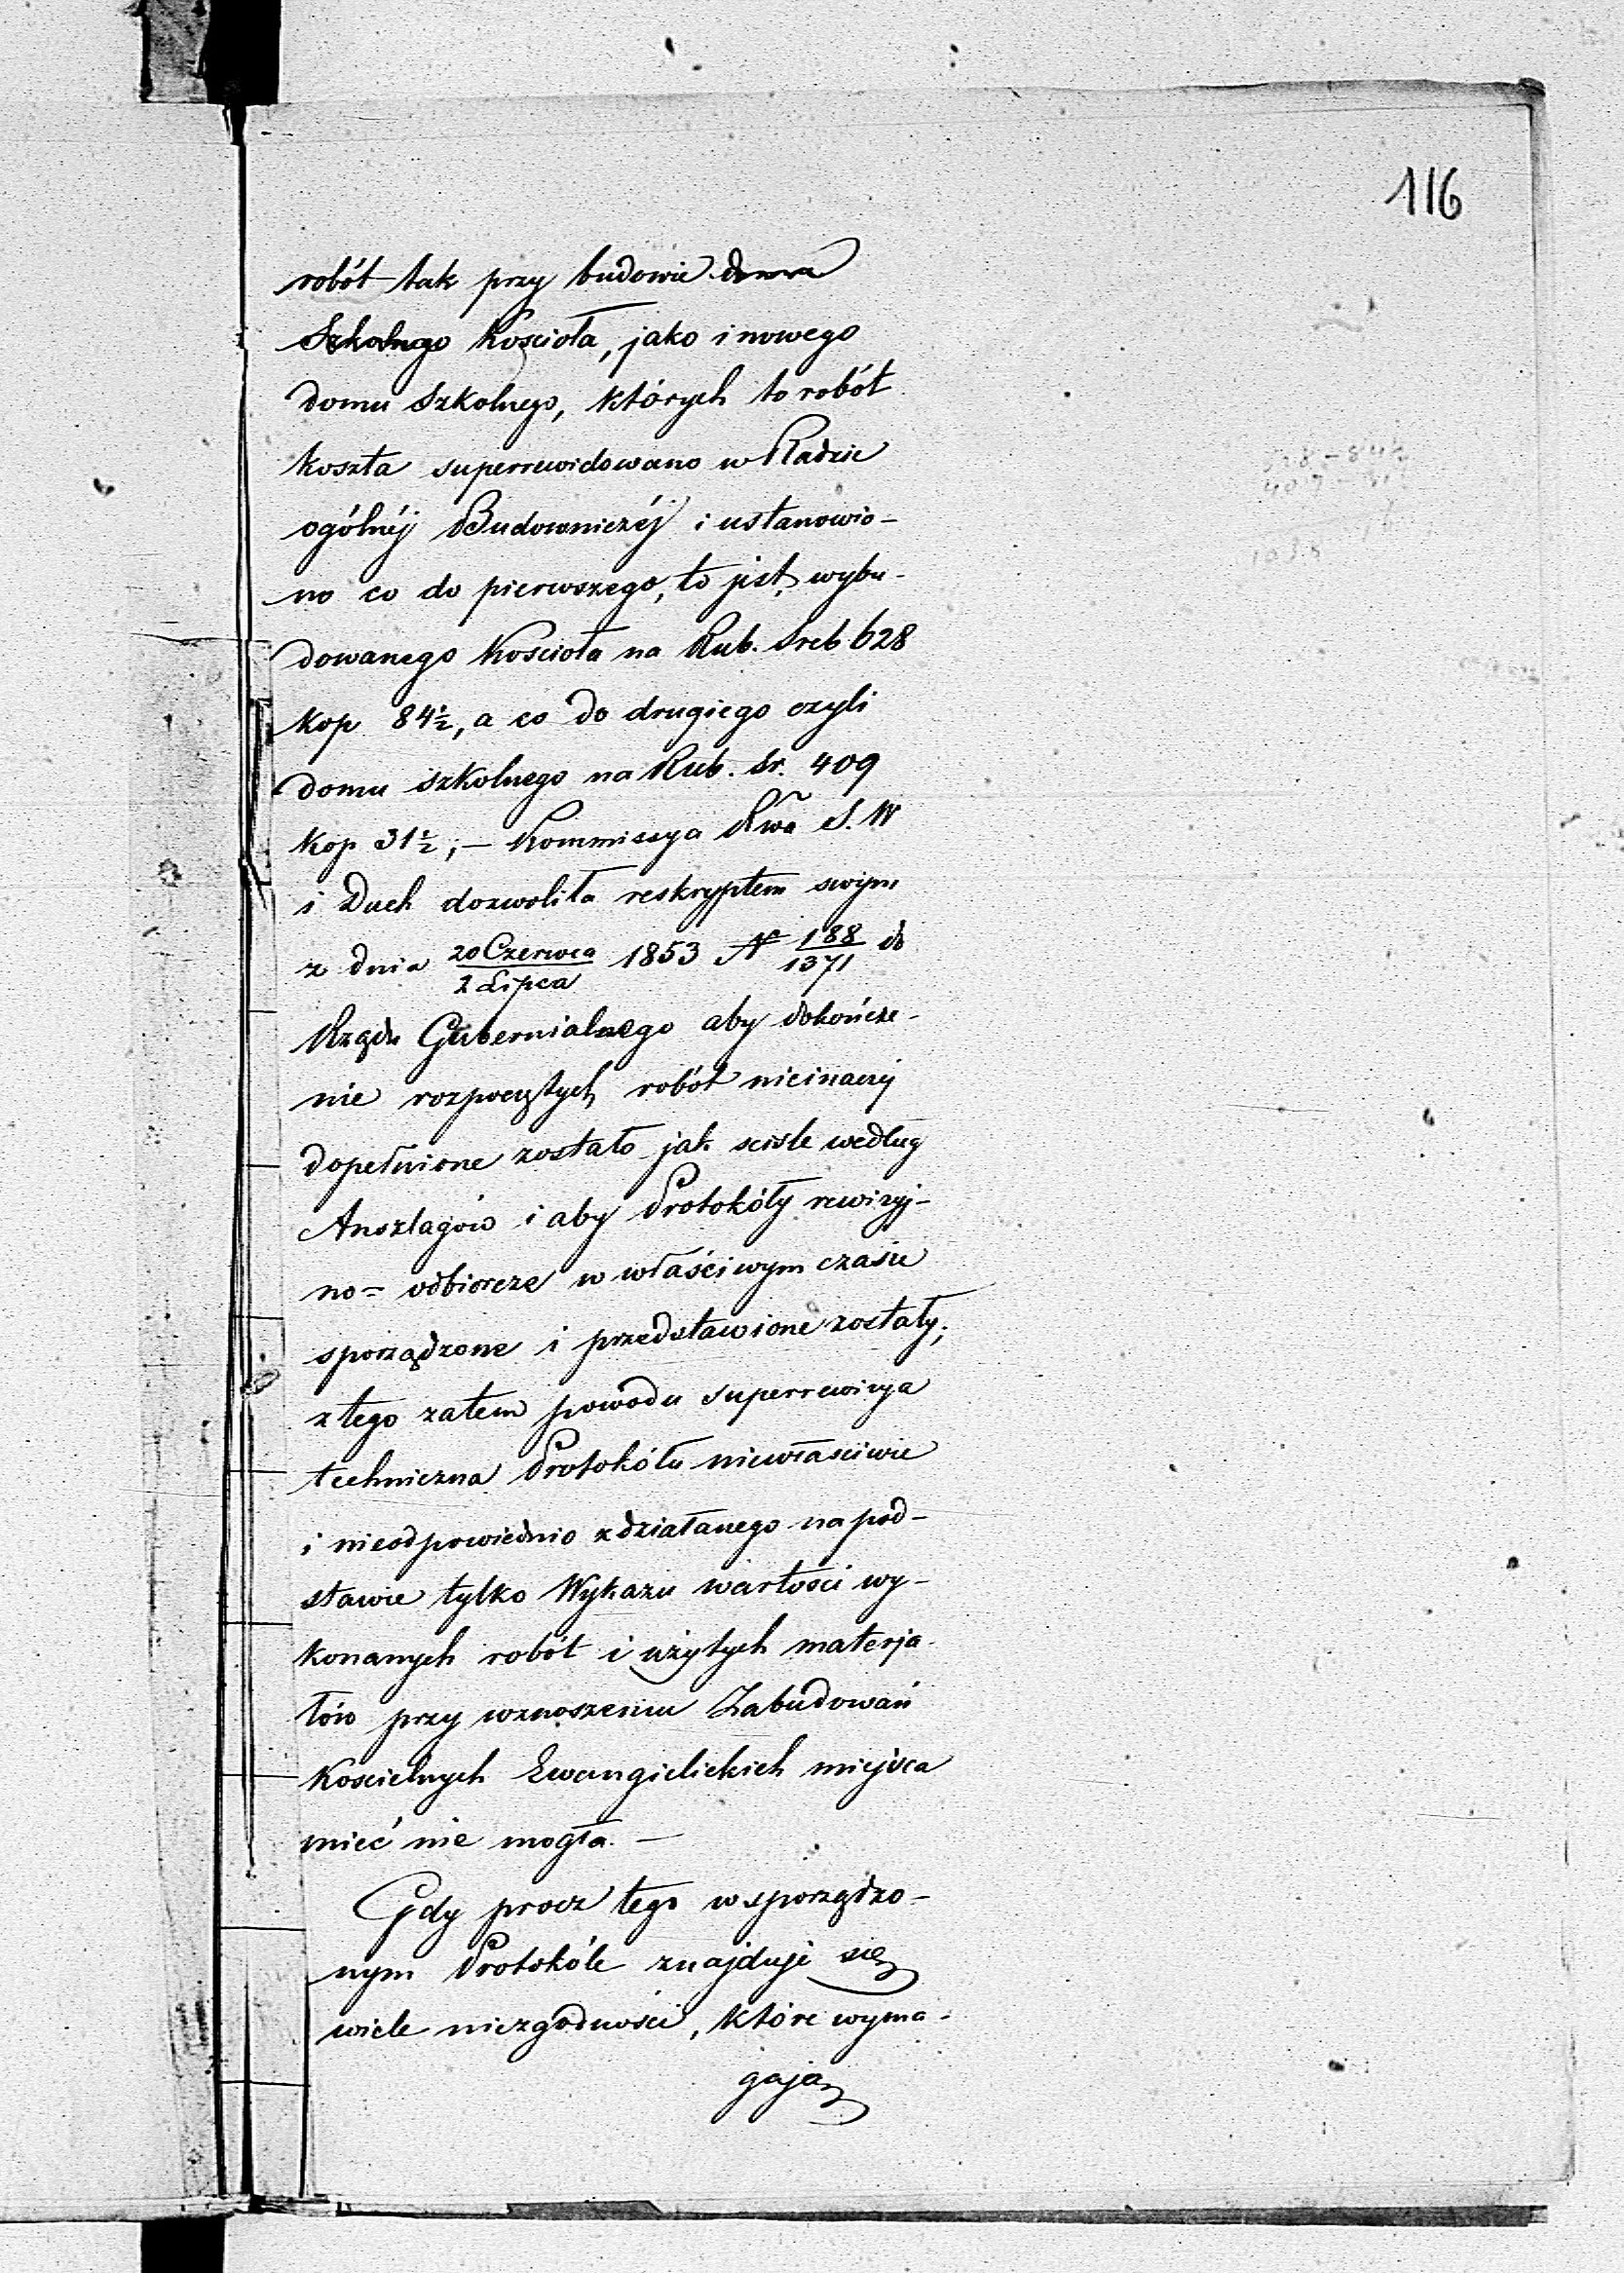 116
robót tak przy budowie domu
Szkolnego Kościoła, jako i nowego
domu szkolnego, których to robót
koszta superrewidowano w Radzie
ogólnéj Budowniczéj i ustanowio-
no co do pierwszego, to jest, wybu-
dowanego Kościoła na Rub. Sreb 628
kop 84½, a co do drugiego czyli
domu szkolnego na Rub. sr. 409
kop 31½;— Kommissya Rwa S. W
i Duch dozwoliła reskryptem swym
z dnia 20 Czerwca/2 Lipca 1853 N 188/1371 do
Rządu Gubernialnego aby dokończe-
nie rozpoczętych robót nieinaczéj
dopełnione zostało jak scisle według
Anszlagów i aby Protokóły rewizyj-
no= odbiorcze w właściwym czasie
sporządzone i przedstawione zostały;
z tego zatem powodu superrewizya
techniczna Protokółu niewłaściwie
i nieodpowiednio zdziałanego na pod-
stawie tylko Wykazu wartości wy-
konanych robót i użytych materja-
łów przy wznoszeniu Zabudowań
Koscielnych Ewangielickich miejsca
mieć nie mogła.—
Gdy procz tego w sporządzo-
nym Protokóle znajduje się
wiele niezgodności, które wyma-
gają